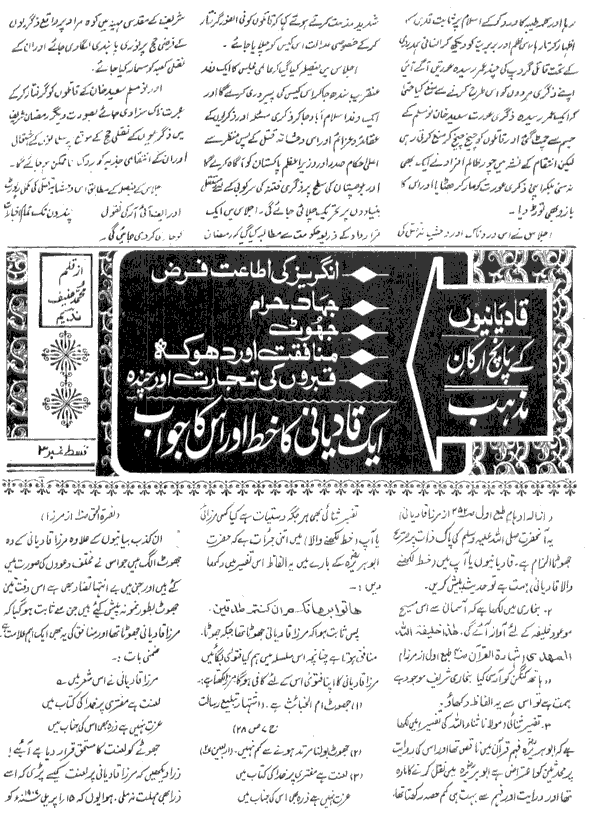 رہا اور کلمہ طیبہ کا ورد کر کے اسلام پر ثابت قدمی کا
اظہار کرتا رہا اس ظلم اور بربریت کو دیکھ کر انسانی ہمدردی
کے تحت قاتل گروپ کی چند عمر رسیدہ عورتیں آگے آئیں
اپنے ذکری مردوں کو اس طرح کرنے سے منع کیا حتیٰ
کہ ایک عمر رسیدہ ذکری عورت سعید خان نو مسلم کے
جسم سے چمٹ گئی اور قاتلوں کو چیخ چیخ کر منع کرتی رہی
لیکن انتقام کے نشہ میں چور ظالم افراد نے ایک بھی
نہ سنی بلکہ اسی ذکری عورت کو مار کر ہٹایا اور اس کا
بازو بھی توڑ دیا۔
اجلاس نے اس دردناک اور وحشیانہ قتل کی
شدید مذمت کرتے ہوئے کہا کہ قاتلوں کو فی الفور گرفتار
کر کے خصوصی عدالت میں کیس کو چلایا جائے۔
اجلاس میں فیصلہ کیا گیا کہ عالمی مجلس کا ایک وفد
عنقریب سندھ جا کر اس کیس کی پیروی کرے گا اور
ایک وفد اسلام آباد جا کر ذکری مسئلہ اور ذکریوں کے
عقائد و عزائم اور اس وحشیانہ قتل کے پس منظر سے
اعلیٰ حکام صدر اور وزیر اعظم پاکستان کو آگاہ کرے گا
اور بلوچستان کی سطح پر ذکری فتنہ کی سرکوبی کے لئے مستقل
بنیادوں پر تحریک چلائی جائے گی۔ اجلاس میں ایک
قرارداد کے ذریعہ حکومت سے مطالبہ کیا گیا کہ رمضان
شریف کے مقدس مہینہ میں کوہ مراد پر واقع ذکریوں
کے فرضی حج پر فوری پابندی لگادی جائے اور ان کے
نقلی کعبہ کو مسمار کیا جائے۔
اور نو مسلم سعید خان کے قاتلوں کو گرفتار کر کے
عبرت ناک سزا دی جائے بصورت دیگر رمضان شریف
میں ذکریوں کے نقلی حج کے موقع پر مسلمانوں کے اشتعال
اور ان کے انتقامی جذبہ کو روکنا ناممکن ہو جائے گا۔
اجلاس کے فیصلہ کے مطابق اس وحشیانہ قتل کی مکمل رپورٹ
اور ایف آئی آر کی نقول پندرہ دن تک تمام اخبارات
کو جاری کر دی جائیں گی۔
قادیانیوں
کے پانچ ارکان
مذہب
انگریز کی اطاعت فرض
جہاد حرام
جھوٹ
منافقت اور دھوکہ
قبروں کی تجارت اور چندہ
ایک قادیانی کا خط اور اس کا جواب
از قلم
محمد حنیف
ندیم
قسط نمبر ۳
(ازالہ اوہام طبع اول ص از مرزا قادیانی)
یہ آنحضرت صلی اللہ علیہ وسلم کی پاک ذات پر سریح
جھوٹا الزام ہے۔ قادیانیوں یا آپ میں (خط لکھنے
والا قادیانی) ہمت ہے تو حدیث پیش کریں۔
۲۔ بخاری میں لکھا ہے کہ آسمان سے اس مسیح
موعود خلیفہ کے لئے آواز آئے گی۔ هٰذا خلیفۃ اللہ
المهدی (شہادۃ القرآن طبع اول از مرزا)
۔ ہاتھ کنگن کو آرسی کیا بخاری شریف موجود ہے
ہمت ہے تو اس سے یہ الفاظ دکھاؤ۔
۳۔ تفسیر ثنائی (مولانا ثناء اللہ کی تفسیر) میں لکھا
ہے کہ ابو ہریرہؓ فہم قرآن میں ناقص تھا اور اس کی روایت
پر محدثین کو اعتراض ہے ابو ہریرہ میں نقل کرنے کا مادہ
تھا اور درایت اور فہم سے بہت ہی کم حصہ رکھتا تھا،
تفسیر ثنائی بھی ہر جگہ دستیاب ہے کیا کسی مرزائی
یا آپ (خط لکھنے والا) میں اتنی جرأت ہے کہ حضرت
ابو ہریرہؓ کے بارے میں یہ الفاظ اس تفسیر میں دکھا
دیں:۔
هاتوا برهانکم ان کنتم صادقین۔
پس ثابت ہوا کہ مرزا قادیانی جھوٹا تھا جبکہ جھوٹا
منافق ہوتا ہے چنانچہ اس سلسلہ میں ہم کیا فتویٰ لگائیں
مرزا قادیانی کا اپنا فتویٰ اس کے لئے کافی ہوگا مرزا لکھتا ہے:۔
(۱) جھوٹ ام الخبائث ہے۔ (اشتہار تبلیغ رسالت
ج ۷ ص ۲۸)
(۲) جھوٹ بولنا مرتد ہونے سے کم نہیں۔ (اربعین
(۳) لعنت ہے مفتری پر خدا کی کتاب میں
عزت نہیں ہے ذرہ بھی اس کی جناب میں
(نصرۃ الحق از مرزا)
ان کذب بیانیوں کے علاوہ مرزا قادیانی کے وہ
جھوٹ الگ ہیں جو اس نے مختلف دعووں کی صورت میں
کئے ہیں اور جن میں بے انتہا تضاد بھی ہے اس وقت تین
جھوٹ بطور نمونہ پیش کئے ہیں جن سے ثابت ہو گیا کہ
مرزا قادیانی جھوٹا تھا اور منافق کی یہ بھی ایک اہم علامت ہے
ضمنی بات :۔
مرزا قادیانی نے اس شعر میں ؎
لعنت ہے مفتری پر خدا کی کتاب میں
عزت نہیں ہے ذرہ بھی اس کی جناب میں
جھوٹے کو لعنت کا مستحق قرار دیا ہے آئیے!
ذرا دیکھیں کہ مرزا قادیانی پر لعنت کیسے پڑی کہ اسے
ذرا بھی مہلت نہ ملی۔ ہوا یوں کہ ۱۵ اپریل ۱۹۰۷ء کو